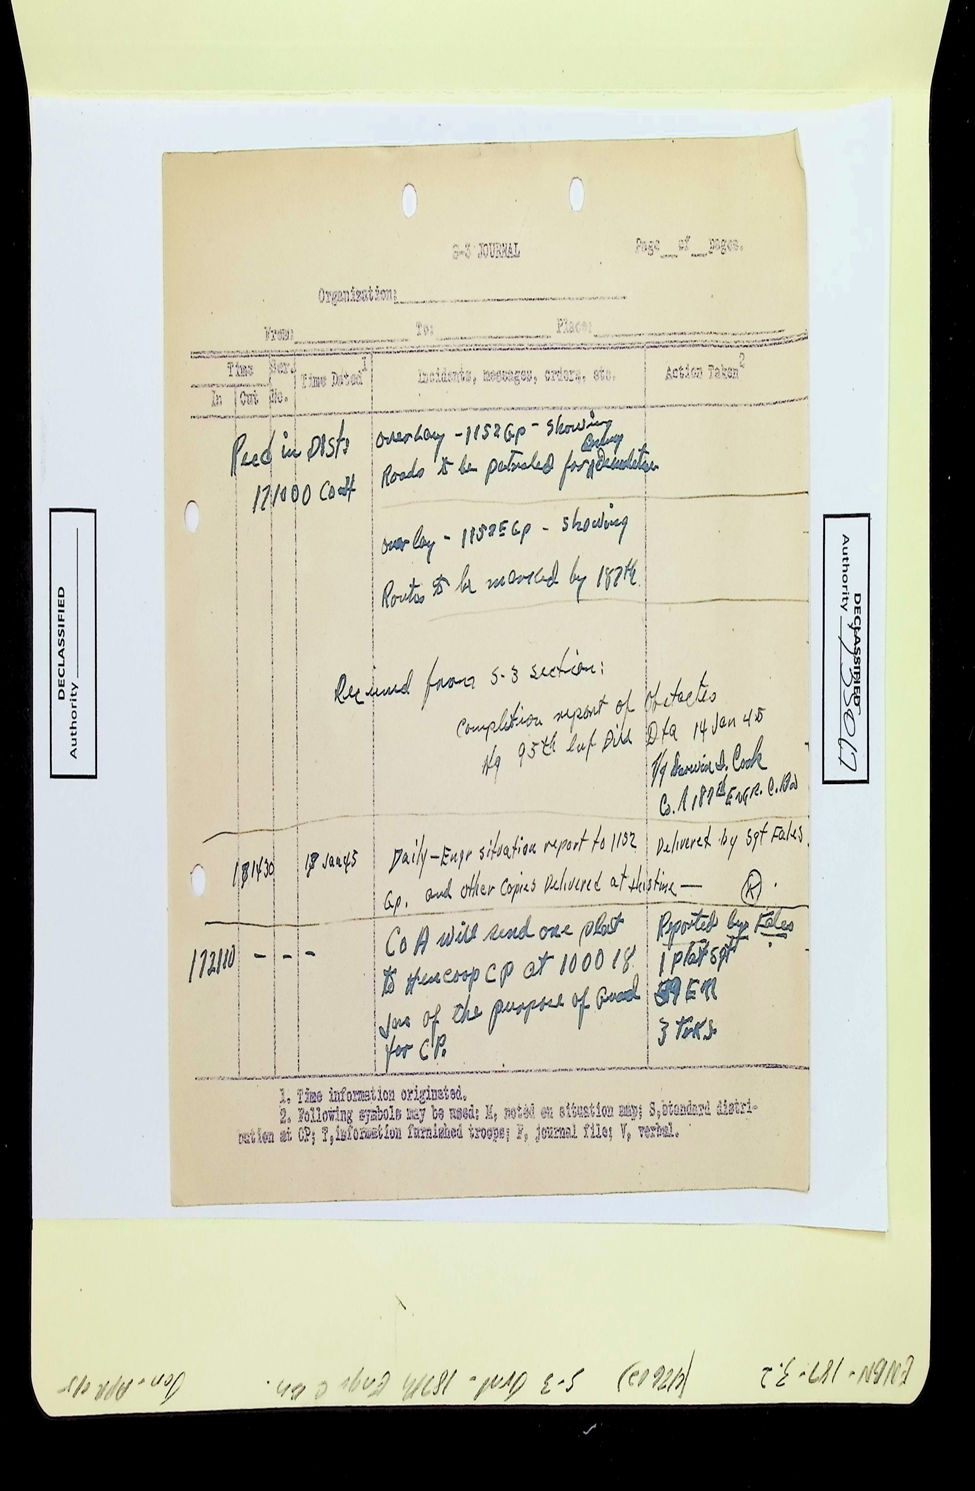 S-3 JOURNAL
Page __ of __ pages.
Organization:
From: To: Place:
Time Ser. Time Dated1 Incidents, messages, orders, etc. Action Taken2
In Out No.
Recd in Dists
171000 Cont
Overlay - 1152 Gp - showing
Roads to be patroled for
overlay - 1152 E Gp - showing
Routes to be marked by 187th
Received from S-3 section:
Completion report of Obstacles
Hq 95th Inf Div Dtd 14 Jan 45
Cook
Co. A 187th ENGR. C. Bn
181430 18 Jan 45 Daily - Engr situation report to 1152 Delivered by Sgt Fales
Gp. and other copies Delivered at this time — R
172110 - - - Co A will send one plat Reported by Fales
to Hencoop CP at 1000 18 1 plat sgt
Jan of the purpose of Guard EM
for CP. 3 Trks.
1. Time information originated.
2. Following symbols may be used: M, noted on situation map; S, standard distri-
bution at CP; T, information furnished troops; F, journal file; V, verbal.
DECLASSIFIED
Authority
DECLASSIFIED
Authority
ENBN-187-3.2 S-3 Jrnl - 187th Engr C Bn. Jan-Apr 45